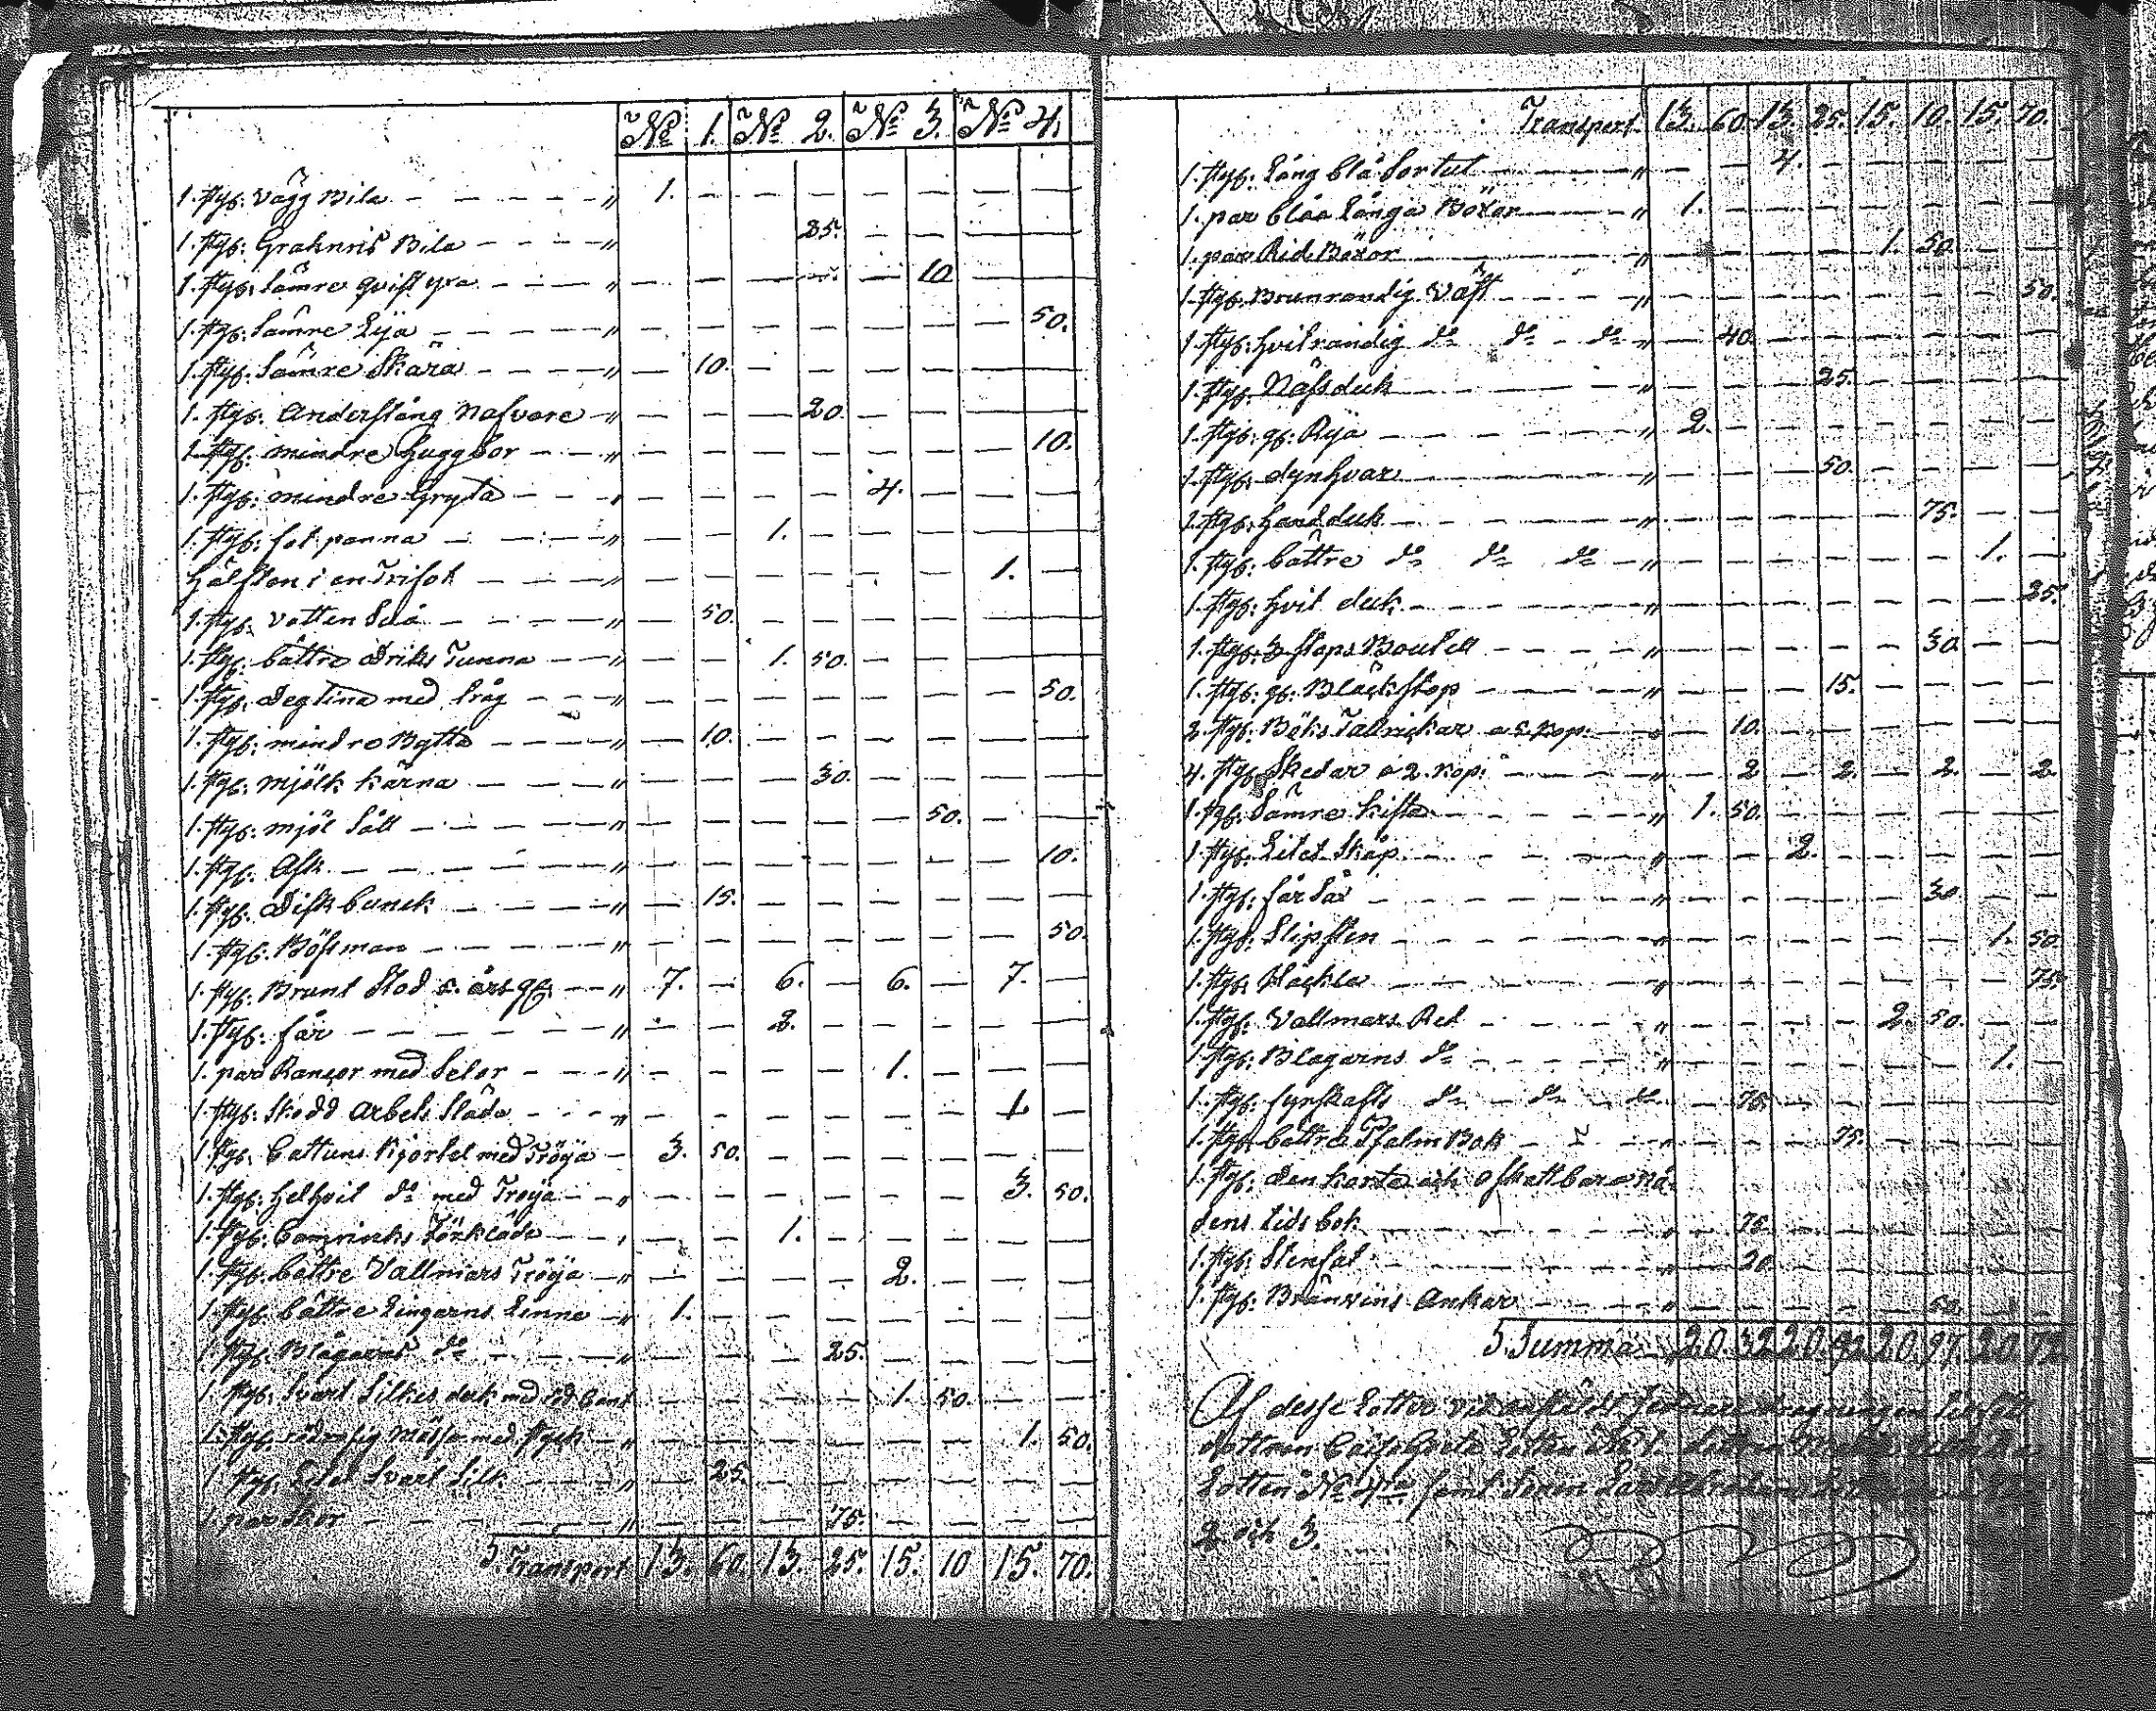 No 1. No 2. No 3. No 4.
1. styk: Vägg Bila — — — " 1. — — — — — — —
1. styk: Grahnris Bila — — — " 25. — — — —
1. styk: sämre qvist yxa — — — " — — — — — 10 — —
1. styk: sämre Lya — — — " — — — — — — — 50.
1. styk: sämre Skära — — — " — 10. — — — — — —
1. styk: Anderstång Nafvare — " — — — 20. — — — —
1. styk: mindre Huggbor — — " — — — — — — — 10.
1. styk: mindre Gryta — — — " — — — — 4. — — —
1. styk: fat panna — — — " — — 1. — — — — —
Hälften i en Trifot — — — " — — — — — — 1. —
1. styk: Vatten Så — — — " — 50. — — — — — —
1. styk: bättre Driks Tunna — — " — — 1. 50. — — — —
1. styk: Degtina med tråg — — — " — — — — — — — 50.
1. styk: mindre Bytta — — — " — 10. — — — — — —
1. styk: mjölk kärna — — — " — — — 30. — — — —
1. styk: mjöl såll — — — " — — — — — 50. — —
1. styk: Ask — — — " — — — — — — — 10.
1. styk: Disk bunck — — — " — 15. — — — — — —
1. styk: Bösman — — — " — — — — — — — 50.
1. styk: Brunt Stod års gl: — — " 7. — 6. — 6. — 7. —
1. styk: får — — — " — — 2. — — — — —
1. par Rancor med Selar — — — " — — — — 1. — — —
1. styk: Skodd Arbets Släda — — — " — — — — — — 1. —
1. styk: Cattuns Kjortel med Tröya — 3. 50. — — — — — —
1. styk: helhvit do med Tröya — — " — — — — — — 3. 50.
1. styk: Camricks Förkläde — — " — — 1. — — — — —
1. styk: bättre Vallmars Tröya — " — — — — 2. — — —
1. styk: bättre Lingarns Linne — " 1. — — — — — — —
1. styk: Blågarns do — — — " — — — 25. — — — —
1. styk: Svart Silkes duk med röd bant — — — — 1. 50. — —
1. styk: rödrosig mössa med styck — " — — — — — — 1. 50.
1. styk: Litet Svart Silk. — — — " — 25. — — — — — —
1. par Skor — — — " — — — 75. — — — —
S. Transport 13. 60. 13. 25. 15. 10 15. 70.
Transport 13. 60. 13. 25. 15. 10. 15. 70.
1. styk: Lång blå Sortut — — — " — — 4. — — — — —
1. par blåa Långa Böxor — — " 1. — — — — — — —
1. par Rid Böxor — — — " — — — — 1. 50. — —
1. styk: Brunrandig Väst — — — " — — — — — — — 50.
1. styk: hvitrandig do do — do " — 40. — — — — — —
1. styk: Näsduk — — — " — — — 25. — — — —
1. styk: gl: Rya — — — " 2. — — — — — — —
1. styk: dynhvar — — — " — — — 50. — — — —
1. styk: handduk — — — " — — — — — 75. — —
1. styk: bättre do do do — " — — — — — — 1. —
1. styk: hvit duk — — — " — — — — — — — 25.
1. styk: 3 stops Boutell — — — " — — — — — 30. — —
1. styk: gl: Bläckstop — — — " — — — 15. — — — —
2. styk: Böks Tallrickar a 5. kop: — " — 10. — — — — — —
4. styk: Skedar a 2. kop: — — " — 2. — 2. — 2. — 2.
1. styk: Sämre kista — — — " 1. 50. — — — — — —
1. styk: Litet Skåp — — — " — — 2. — — — — —
1. styk: får Sax — — — " — — — — — 30. — —
1. styk: Slipsten — — — " — — — — — — 1. 50.
1. styk: Häckla — — — " — — — — — — — 75.
1. styk: Vallmars Ret — — — " — — — — 2. 50. — —
1. styk: Blagarns do — — — " — — — — — — 1. —
1. styk: fyrskafts do — do — do — — 75. — — — — — —
1. styk: bättre Psalm Bok — — — " — — — 75. — — — —
1. styk: den korta och oskattbara nå-
dens tids bok — — — " — 75. — — — — — —
1. styk: Stenfat — — — " — 20. — — — — — —
1. styk: Bränvins Ankar — — — " — — — — — 50. — —
S. Summa 20. 32 20. 92 20. 97. 20. 72.
Af desse Lotter vid
dottren Cajsa Greta Lotten No 1. dottren
Lotten No 4 samt Sonen Lars
2 och 3.